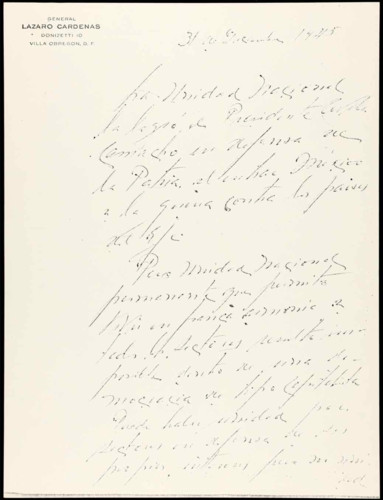 GENERAL
LAZARO CARDENAS
DONIZETTI 10
VILLA OBREGON, D. F.
31 de Diciembre 1945
La Unidad Nacional
la logró el Presidente
Camacho, en defensa de
la Patria, al entrar México
a la guerra contra los países
del Eje
Pero Unidad Nacional
permanente que permita
vivir en franca armonía a
todos los sectores resulta im-
posible dentro de una de-
mocracia de tipo Capitalista
Puede haber unidad por
sectores en defensa de sus
propios intereses pero no